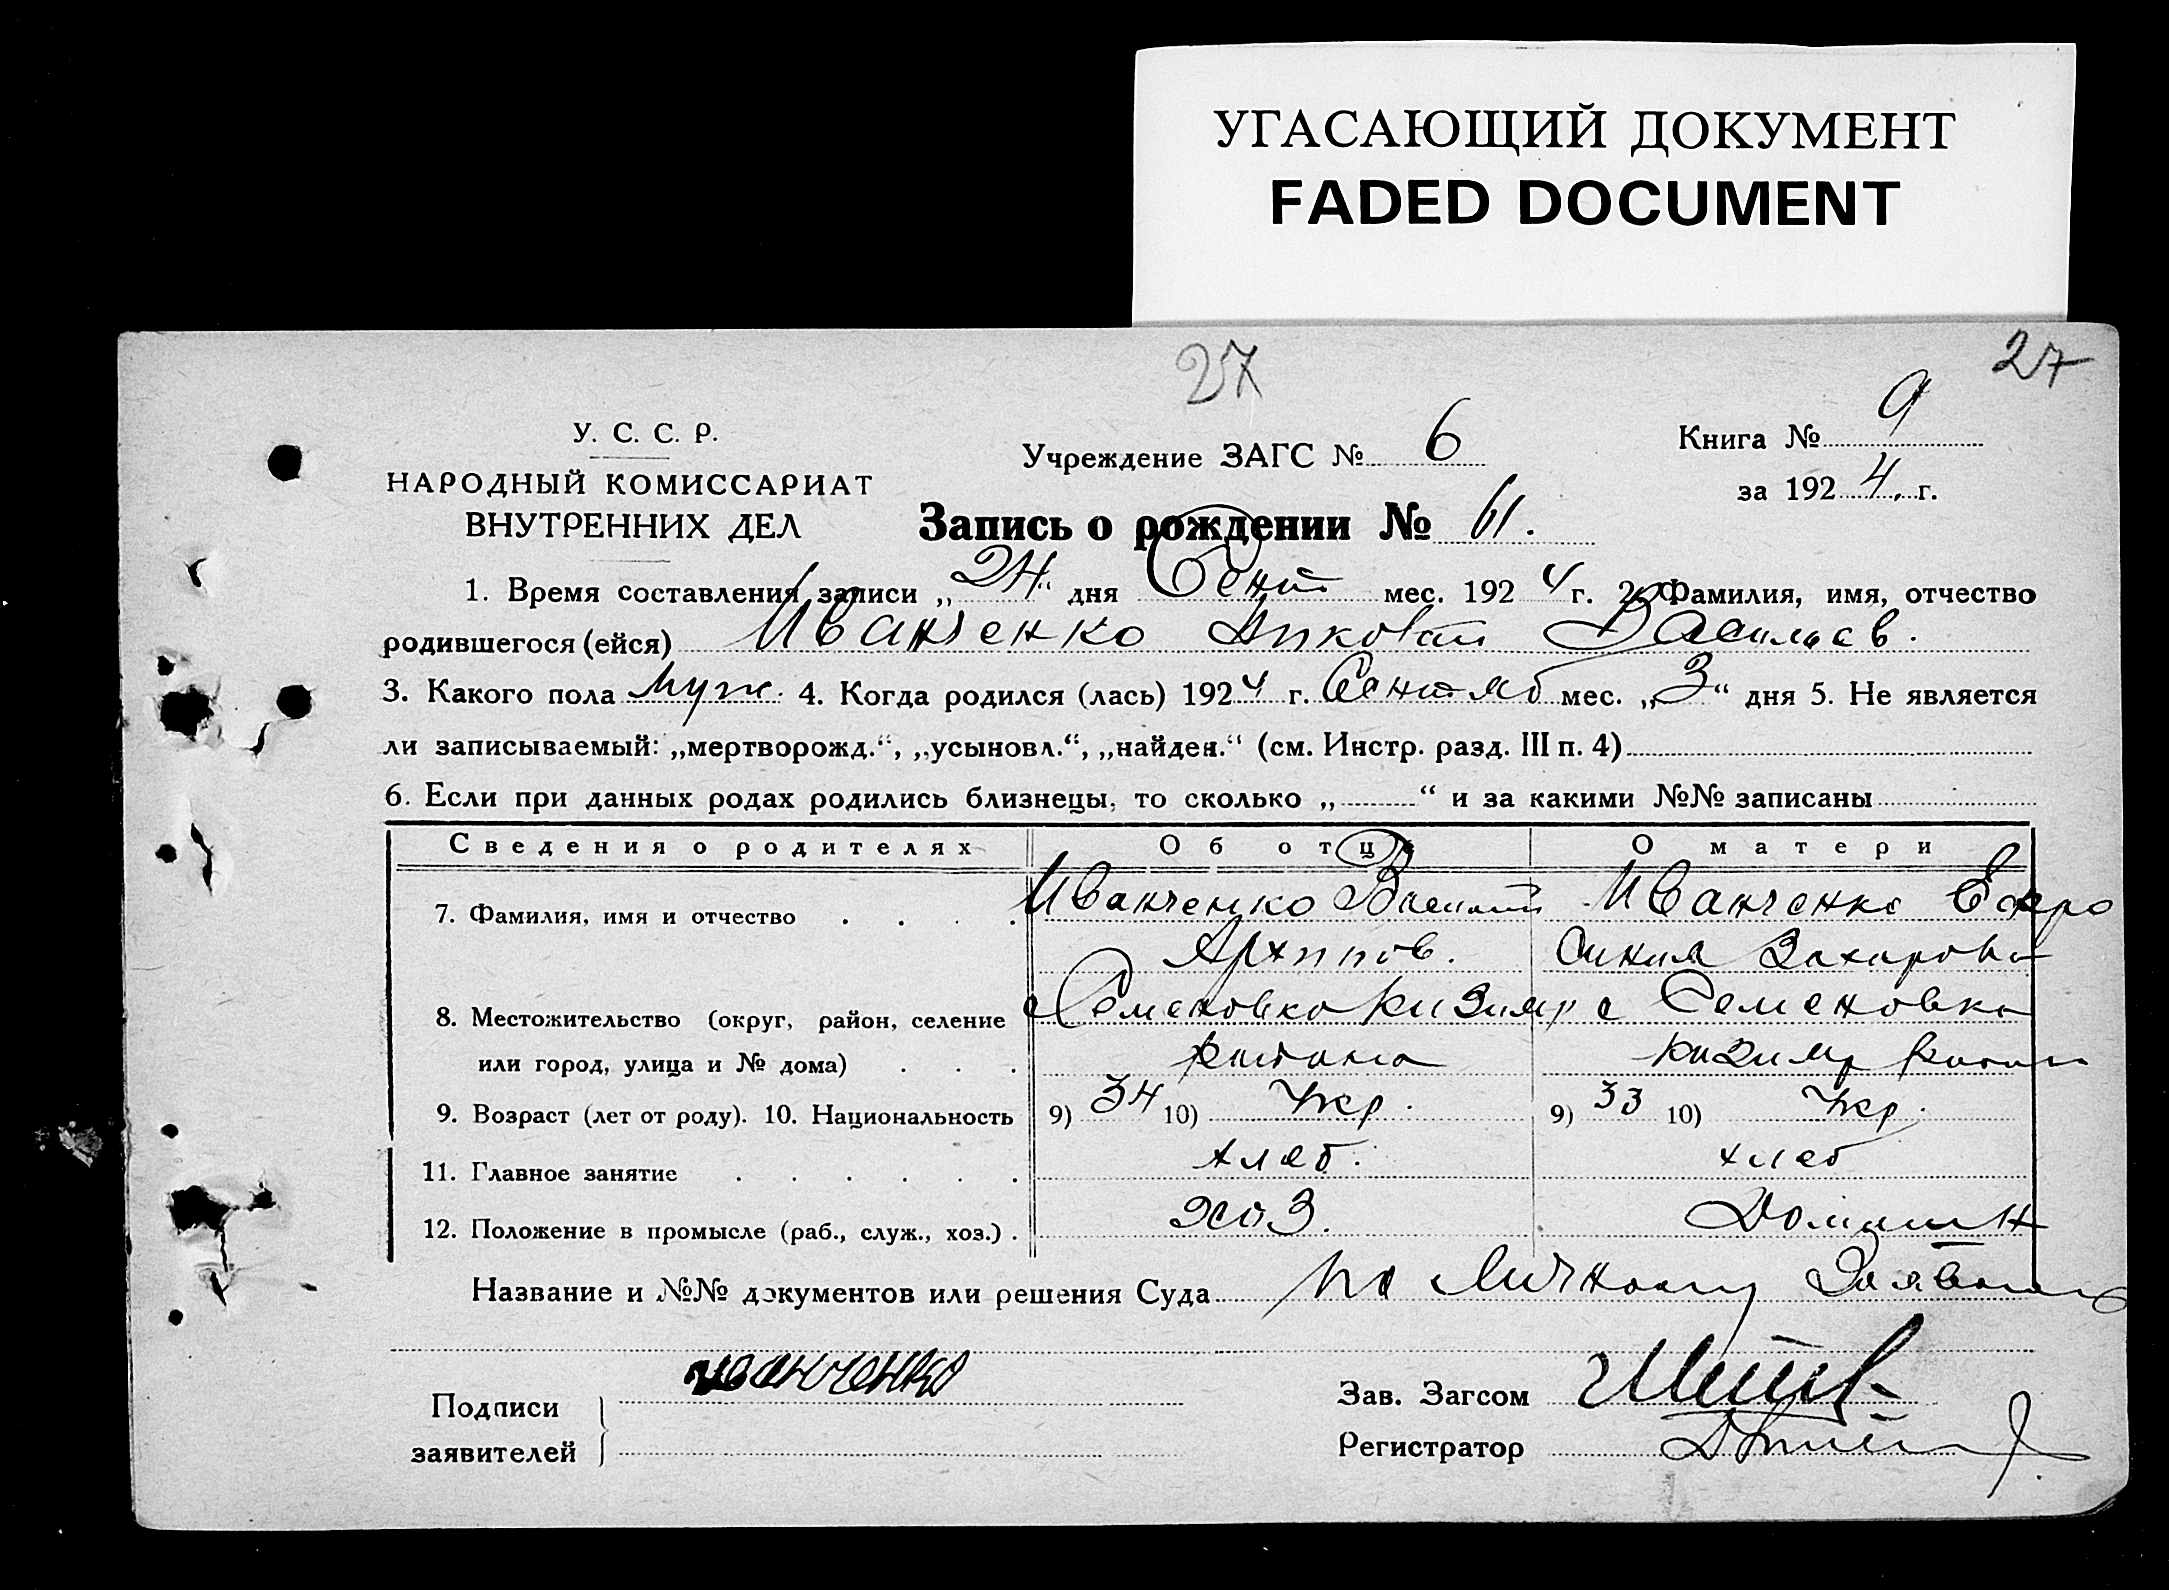 УГАСАЮЩИЙ ДОКУМЕНТ
FADED DOCUMENT
27
27
У. С. С. Р.
НАРОДНЫЙ КОМИССАРИАТ
ВНУТРЕННИХ ДЕЛ
Учреждение ЗАГС № 6
Книга № 9
за 1924 г.
Запись о рождении № 61.
1. Время составления записи „24“ дня Сент мес. 1924 г. 2. Фамилия, имя, отчество
родившегося (ейся) Иванченко Николай Васильев.
3. Какого пола муж. 4. Когда родился (лась) 1924 г. Сентяб мес. „3“ дня 5. Не является
ли записываемый: „мертворожд.“, „усыновл.“, „найден.“ (см. Инстр. разд. III п. 4)
6. Если при данных родах родились близнецы, то сколько „ “ и за какими №№ записаны
Сведения о родителях Об отце О матери
7. Фамилия, имя и отчество . . . . Иванченко Василий Иванченко Ефро
Архипов. синия Захарова
8. Местожительство (округ, район, селение с Семеновка Кизимр с Семеновка
или город, улица и № дома) . . . района Кизимр район
9. Возраст (лет от роду). 10. Национальность 9) 34 10) Укр. 9) 33 10) Укр.
11. Главное занятие . . . . . . хлеб. хлеб
12. Положение в промысле (раб., служ., хоз.) . хоз. Домашн
Название и №№ документов или решения Суда по личному Заявлению
Подписи
заявителей
иванченко
Зав. Загсом
Регистратор